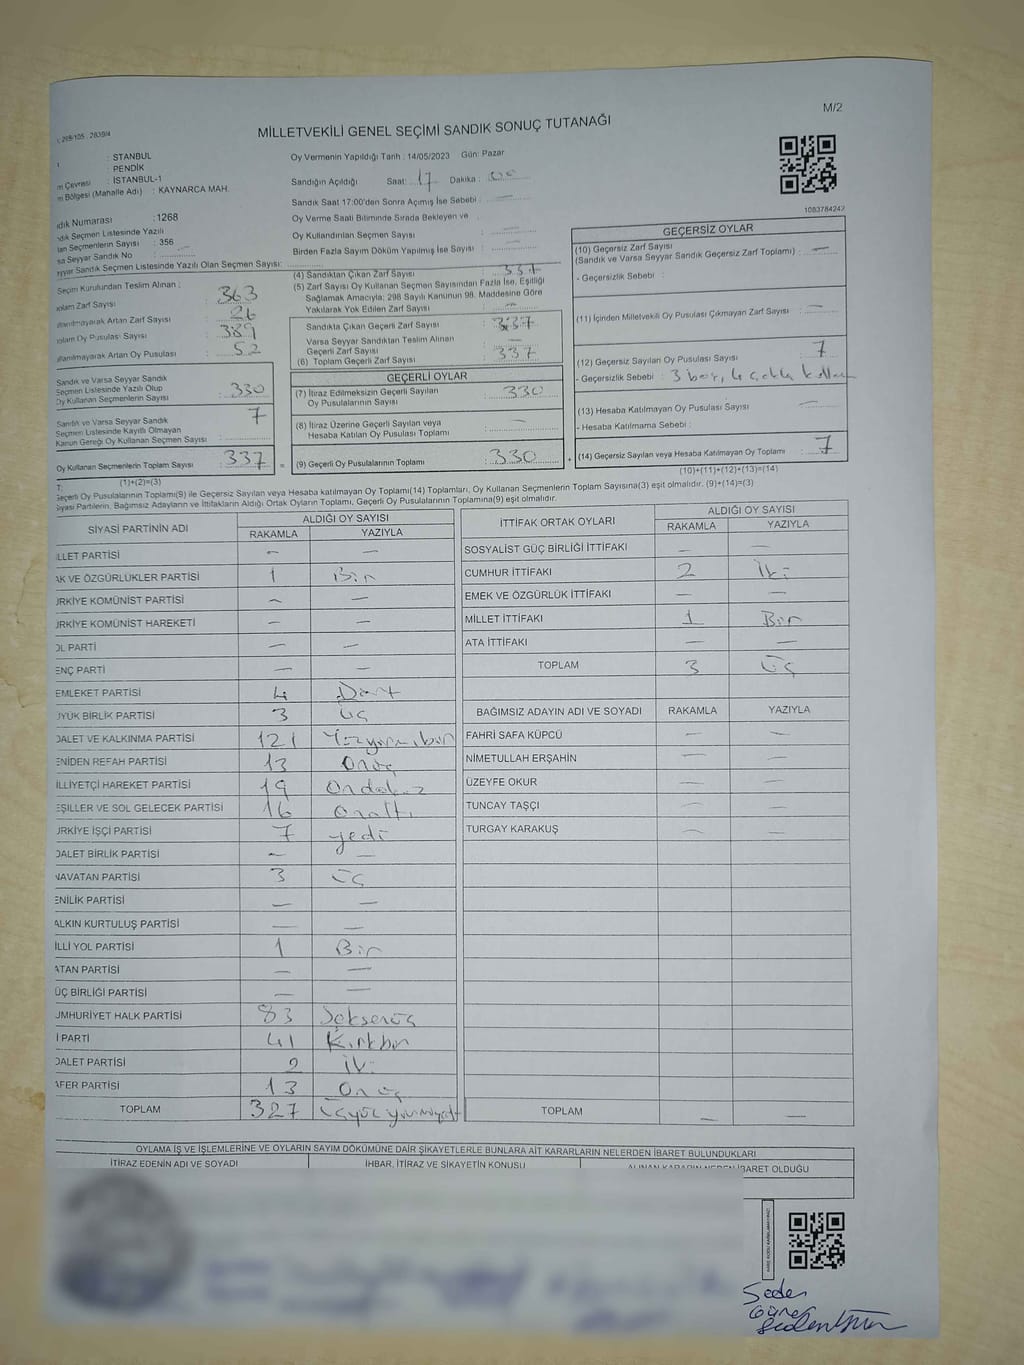 M/2
MİLLETVEKİLİ GENEL SEÇİMİ SANDIK SONUÇ TUTANAĞI
: İSTANBUL
: PENDİK
: İSTANBUL-1
Bölgesi (Mahalle Adı) : KAYNARCA MAH.
Oy Vermenin Yapıldığı Tarih : 14/05/2023 Gün: Pazar
Sandığın Açıldığı Saat: 17 Dakika : 00
Sandık Saat 17:00'den Sonra Açılmış İse Sebebi : —
Oy Verme Saati Bitiminde Sırada Bekleyen ve
Oy Kullandırılan Seçmen Sayısı : —
Birden Fazla Sayım Döküm Yapılmış İse Sayısı : —
1083784242
Numarası : 1268
Seçmen Listesinde Yazılı
Seçmenlerin Sayısı : 356
Seyyar Sandık No :
Sandık Seçmen Listesinde Yazılı Olan Seçmen Sayısı:
Seçim Kurulundan Teslim Alınan :
Zarf Sayısı : 363
Artan Zarf Sayısı : 26
Oy Pusulası Sayısı : 389
Artan Oy Pusulası : 52
Sandık ve Varsa Seyyar Sandık
Seçmen Listesinde Yazılı Olup
Oy Kullanan Seçmenlerin Sayısı : 330
Sandık ve Varsa Seyyar Sandık
Seçmen Listesinde Kayıtlı Olmayan
Kanun Gereği Oy Kullanan Seçmen Sayısı : 7
Oy Kullanan Seçmenlerin Toplam Sayısı : 337 =
(1)+(2)=(3)
(4) Sandıktan Çıkan Zarf Sayısı : 337
(5) Zarf Sayısı Oy Kullanan Seçmen Sayısından Fazla İse, Eşitliği
Sağlamak Amacıyla; 298 Sayılı Kanunun 98. Maddesine Göre
Yakılarak Yok Edilen Zarf Sayısı : —
Sandıkta Çıkan Geçerli Zarf Sayısı : 337
Varsa Seyyar Sandıktan Teslim Alınan
Geçerli Zarf Sayısı : —
(6) Toplam Geçerli Zarf Sayısı : 337
GEÇERLİ OYLAR
(7) İtiraz Edilmeksizin Geçerli Sayılan
Oy Pusulalarının Sayısı : 330
(8) İtiraz Üzerine Geçerli Sayılan veya
Hesaba Katılan Oy Pusulası Toplamı : —
(9) Geçerli Oy Pusulalarının Toplamı : 330 +
GEÇERSİZ OYLAR
(10) Geçersiz Zarf Sayısı
(Sandık ve Varsa Seyyar Sandık Geçersiz Zarf Toplamı) : —
- Geçersizlik Sebebi :
(11) İçinden Milletvekili Oy Pusulası Çıkmayan Zarf Sayısı : —
(12) Geçersiz Sayılan Oy Pusulası Sayısı : 7
- Geçersizlik Sebebi : 3 boş, 4
(13) Hesaba Katılmayan Oy Pusulası Sayısı : —
- Hesaba Katılmama Sebebi :
(14) Geçersiz Sayılan veya Hesaba Katılmayan Oy Toplamı : 7
(10)+(11)+(12)+(13)=(14)
Geçerli Oy Pusulalarının Toplamı(9) ile Geçersiz Sayılan veya Hesaba katılmayan Oy Toplamı(14) Toplamları, Oy Kullanan Seçmenlerin Toplam Sayısına(3) eşit olmalıdır. (9)+(14)=(3)
Siyasi Partilerin, Bağımsız Adayların ve İttifakların Aldığı Ortak Oyların Toplamı, Geçerli Oy Pusulalarının Toplamına(9) eşit olmalıdır.
SİYASİ PARTİNİN ADI ALDIĞI OY SAYISI
RAKAMLA YAZIYLA
LLET PARTİSİ — —
AK VE ÖZGÜRLÜKLER PARTİSİ 1 Bir
ÜRKİYE KOMÜNİST PARTİSİ — —
ÜRKİYE KOMÜNİST HAREKETİ — —
OL PARTİ — —
ENÇ PARTİ — —
EMLEKET PARTİSİ 4 Dört
ÜYÜK BİRLİK PARTİSİ 3 üç
DALET VE KALKINMA PARTİSİ 121 Yüzyirmibir
ENİDEN REFAH PARTİSİ 13 Onüç
İLLİYETÇİ HAREKET PARTİSİ 19 Ondokuz
EŞİLLER VE SOL GELECEK PARTİSİ 16 Onaltı
ÜRKİYE İŞÇİ PARTİSİ 7 yedi
DALET BİRLİK PARTİSİ — —
NAVATAN PARTİSİ 3 üç
ENİLİK PARTİSİ — —
ALKIN KURTULUŞ PARTİSİ — —
İLLİ YOL PARTİSİ 1 Bir
ATAN PARTİSİ — —
ÜÇ BİRLİĞİ PARTİSİ — —
UMHURİYET HALK PARTİSİ 83 Seksenüç
İ PARTİ 41 Kırkbir
DALET PARTİSİ 2 iki
AFER PARTİSİ 13 Onüç
TOPLAM 327 üçyüzyirmiyedi
İTTİFAK ORTAK OYLARI ALDIĞI OY SAYISI
RAKAMLA YAZIYLA
SOSYALİST GÜÇ BİRLİĞİ İTTİFAKI — —
CUMHUR İTTİFAKI 2 İki
EMEK VE ÖZGÜRLÜK İTTİFAKI — —
MİLLET İTTİFAKI 1 Bir
ATA İTTİFAKI — —
TOPLAM 3 üç
BAĞIMSIZ ADAYIN ADI VE SOYADI RAKAMLA YAZIYLA
FAHRİ SAFA KÜPCÜ — —
NİMETULLAH ERŞAHİN — —
ÜZEYFE OKUR — —
TUNCAY TAŞÇI — —
TURGAY KARAKUŞ — —
TOPLAM — —
OYLAMA İŞ VE İŞLEMLERİNE VE OYLARIN SAYIM DÖKÜMÜNE DAİR ŞİKAYETLERLE BUNLARA AİT KARARLARIN NELERDEN İBARET BULUNDUKLARI
İTİRAZ EDENİN ADI VE SOYADI İHBAR, İTİRAZ VE ŞİKAYETİN KONUSU ALINAN KARARIN NEDEN İBARET OLDUĞU